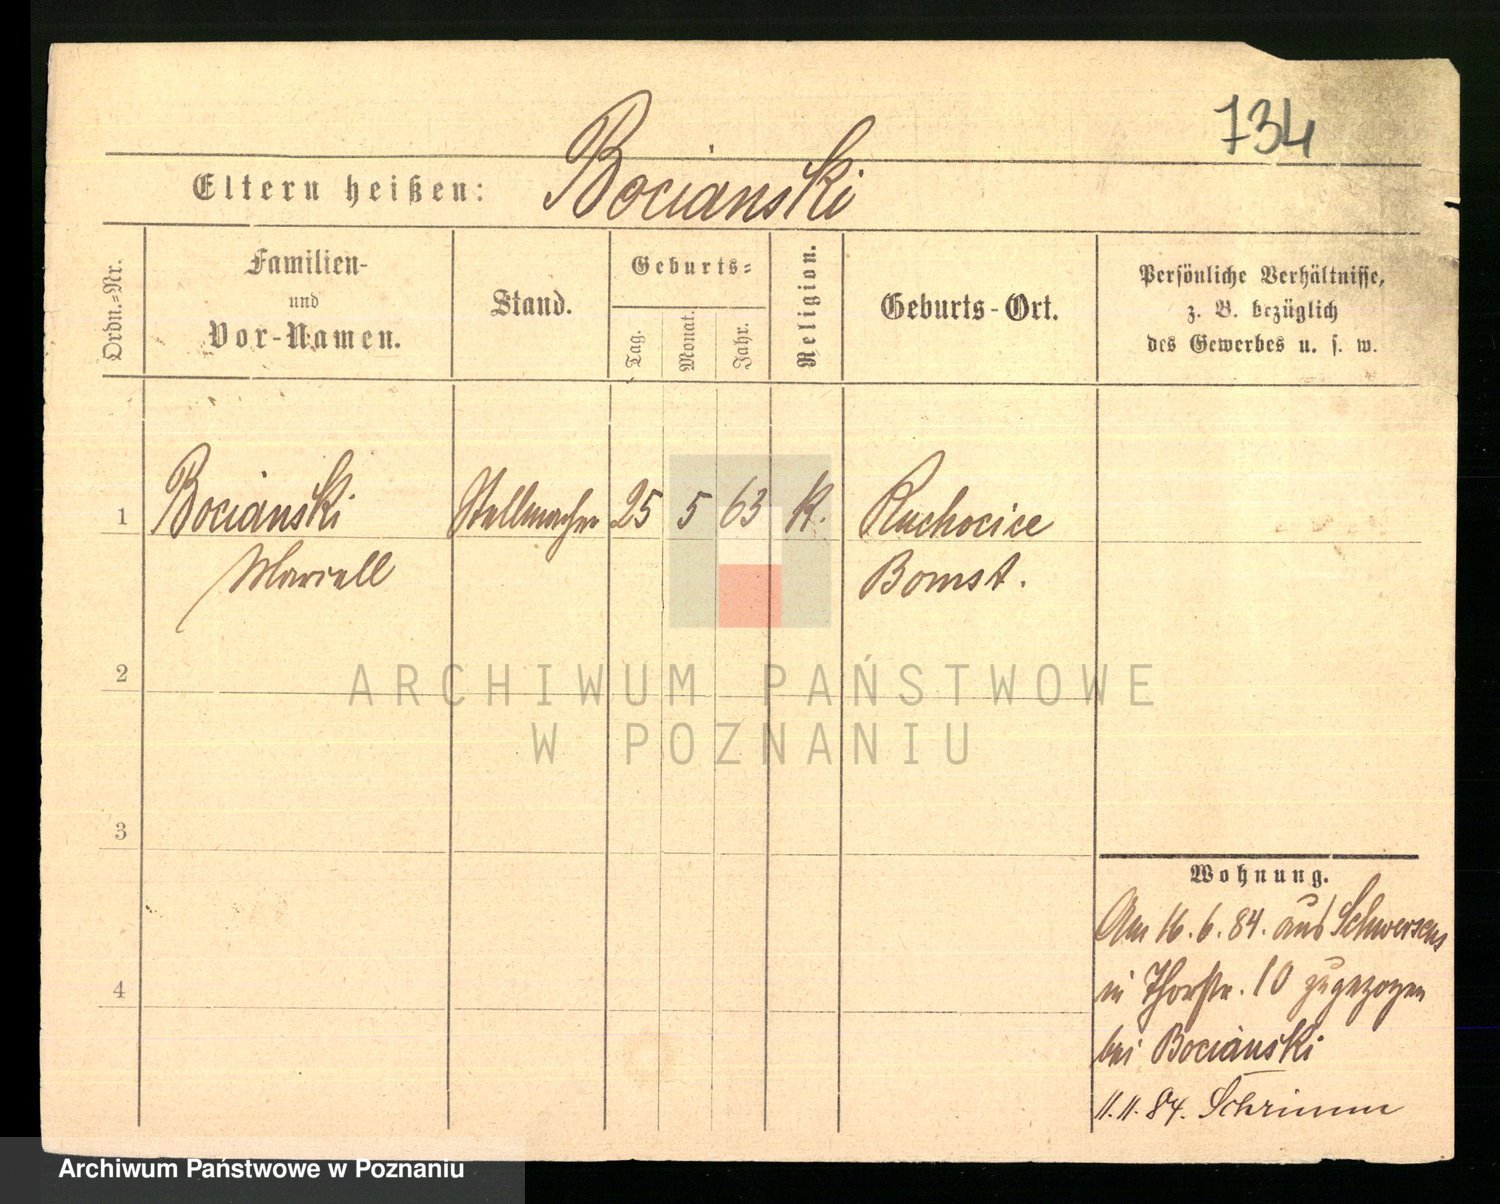 734
Eltern heißen: Bocianski
Ordn.=Nr.
Familien-
und
Vor-Namen.
Stand.
Geburts=
Tag.
Monat.
Jahr.
Religion.
Geburts-Ort.
Persönliche Verhältnisse,
z. B. bezüglich
des Gewerbes u. s. w.
1 Bocianski Stellmacher 25 5 63 k. Ruchocice
Marcell Bomst.
2
ARCHIWUM PAŃSTWOWE
W POZNANIU
3
4
Wohnung.
Am 16. 6. 84. aus Schwersens
in Thorstr. 10 zugezogen
bei Bocianski
11. 11. 84. Schrimm
Archiwum Państwowe w Poznaniu